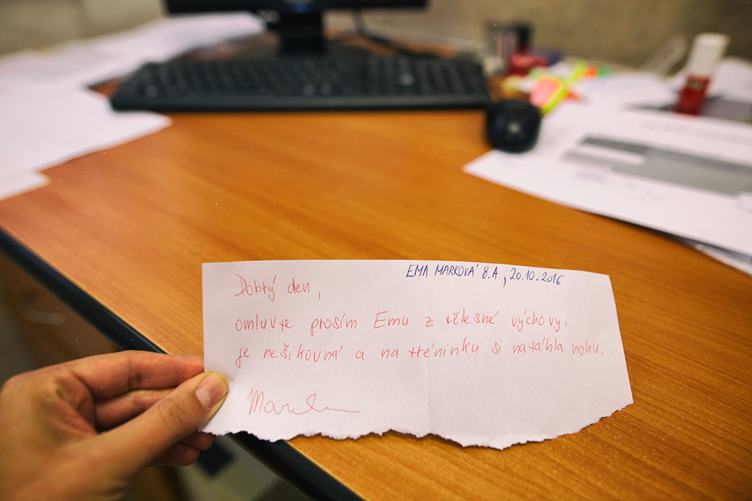 EMA MARKOVÁ 8.A, 20.10.2016
Dobrý den,
omluvte prosím Emu z tělesné výchovy,
je nešikovná a na tréninku si natáhla nohu.